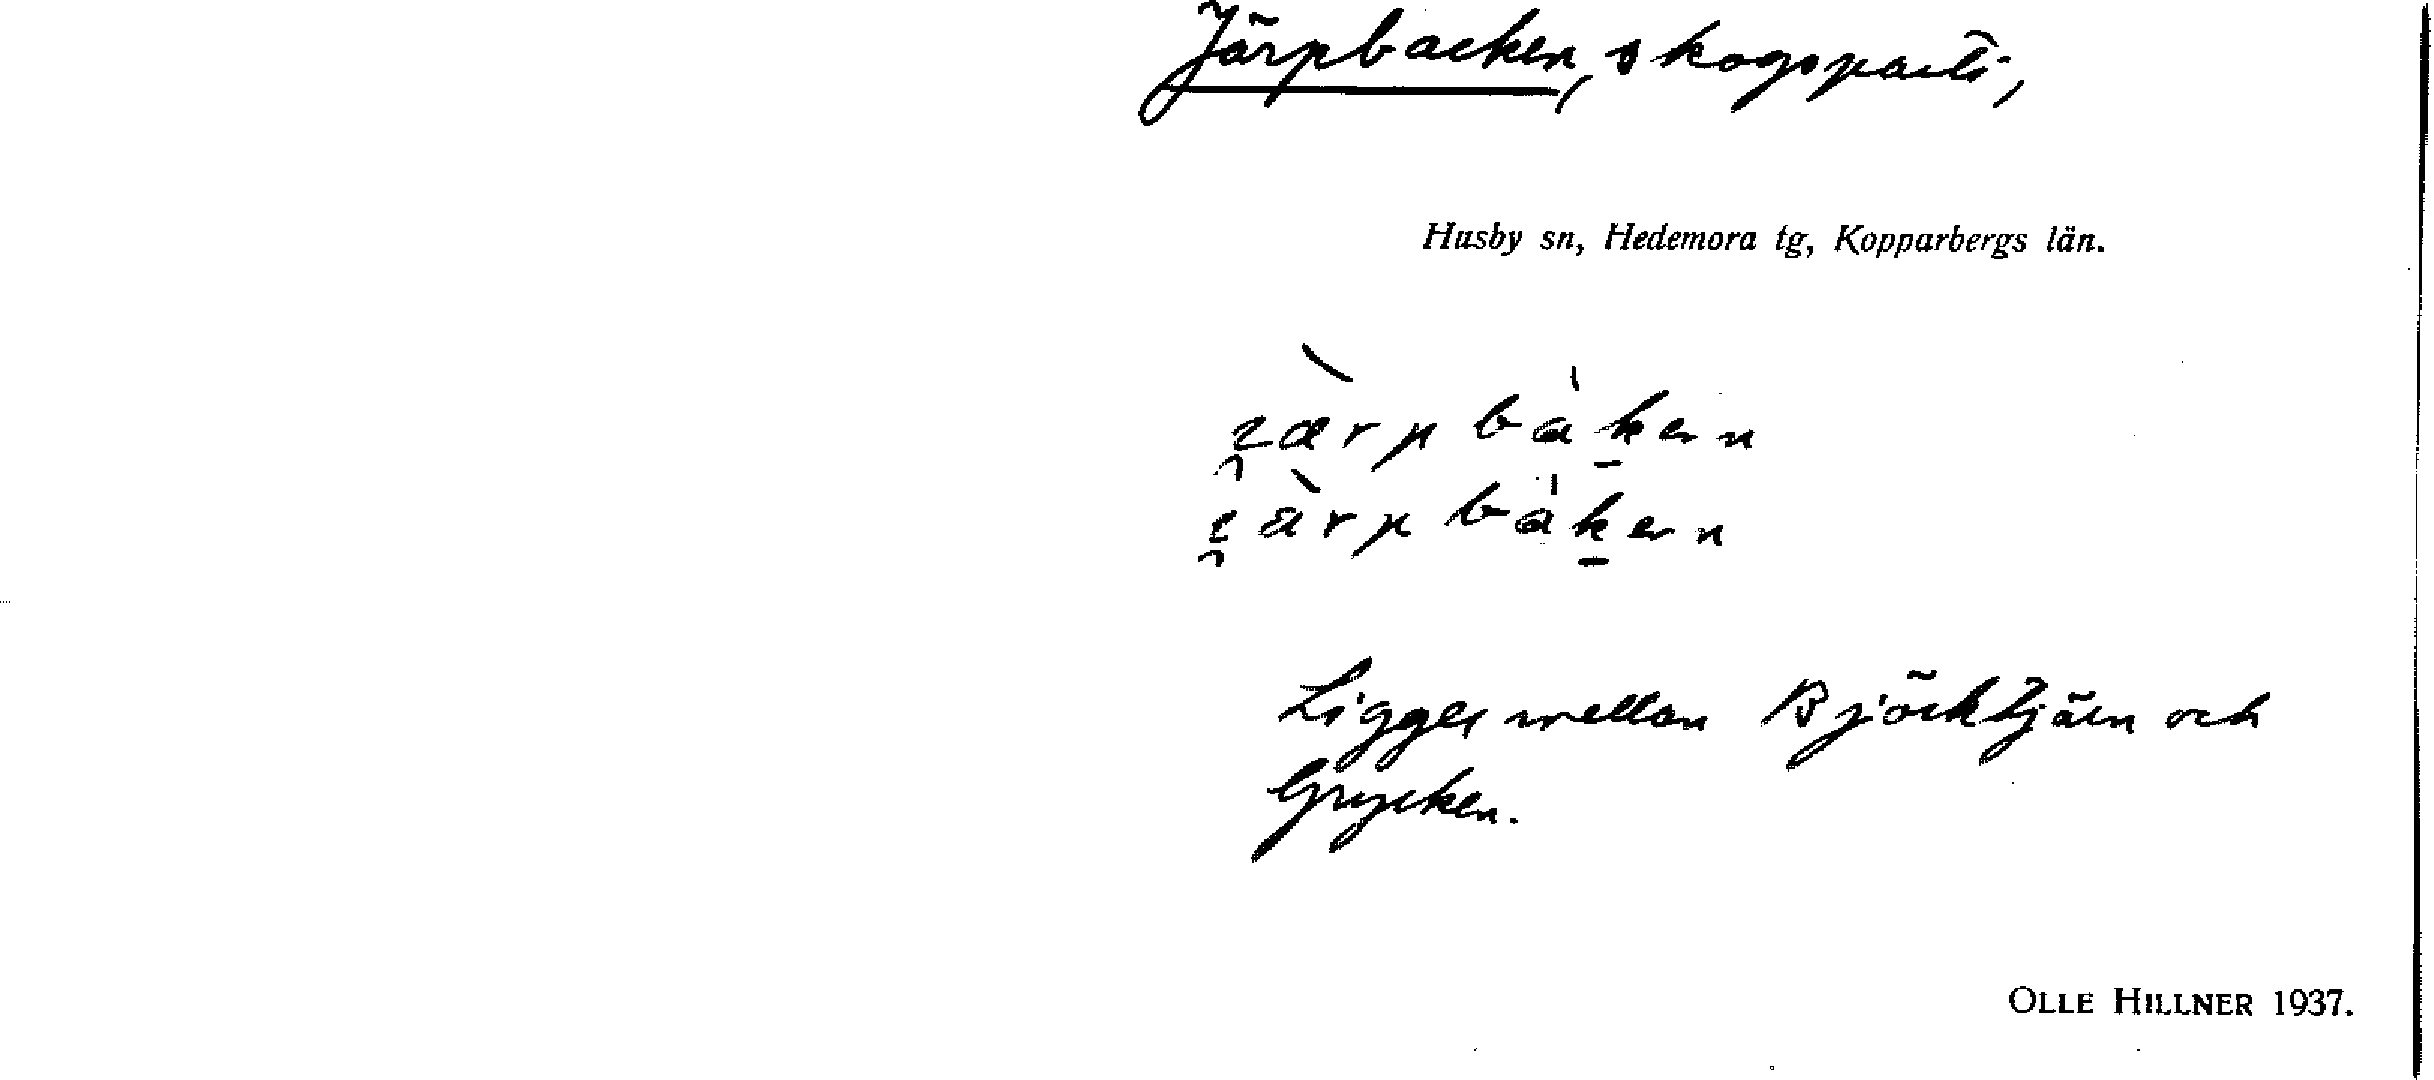 Järpbacken, skogsparti,
Husby sn, Hedemora tg, Kopparbergs län.
Ligger mellan Björktjärn och
Grycken.
OLLE HILLNER 1937.